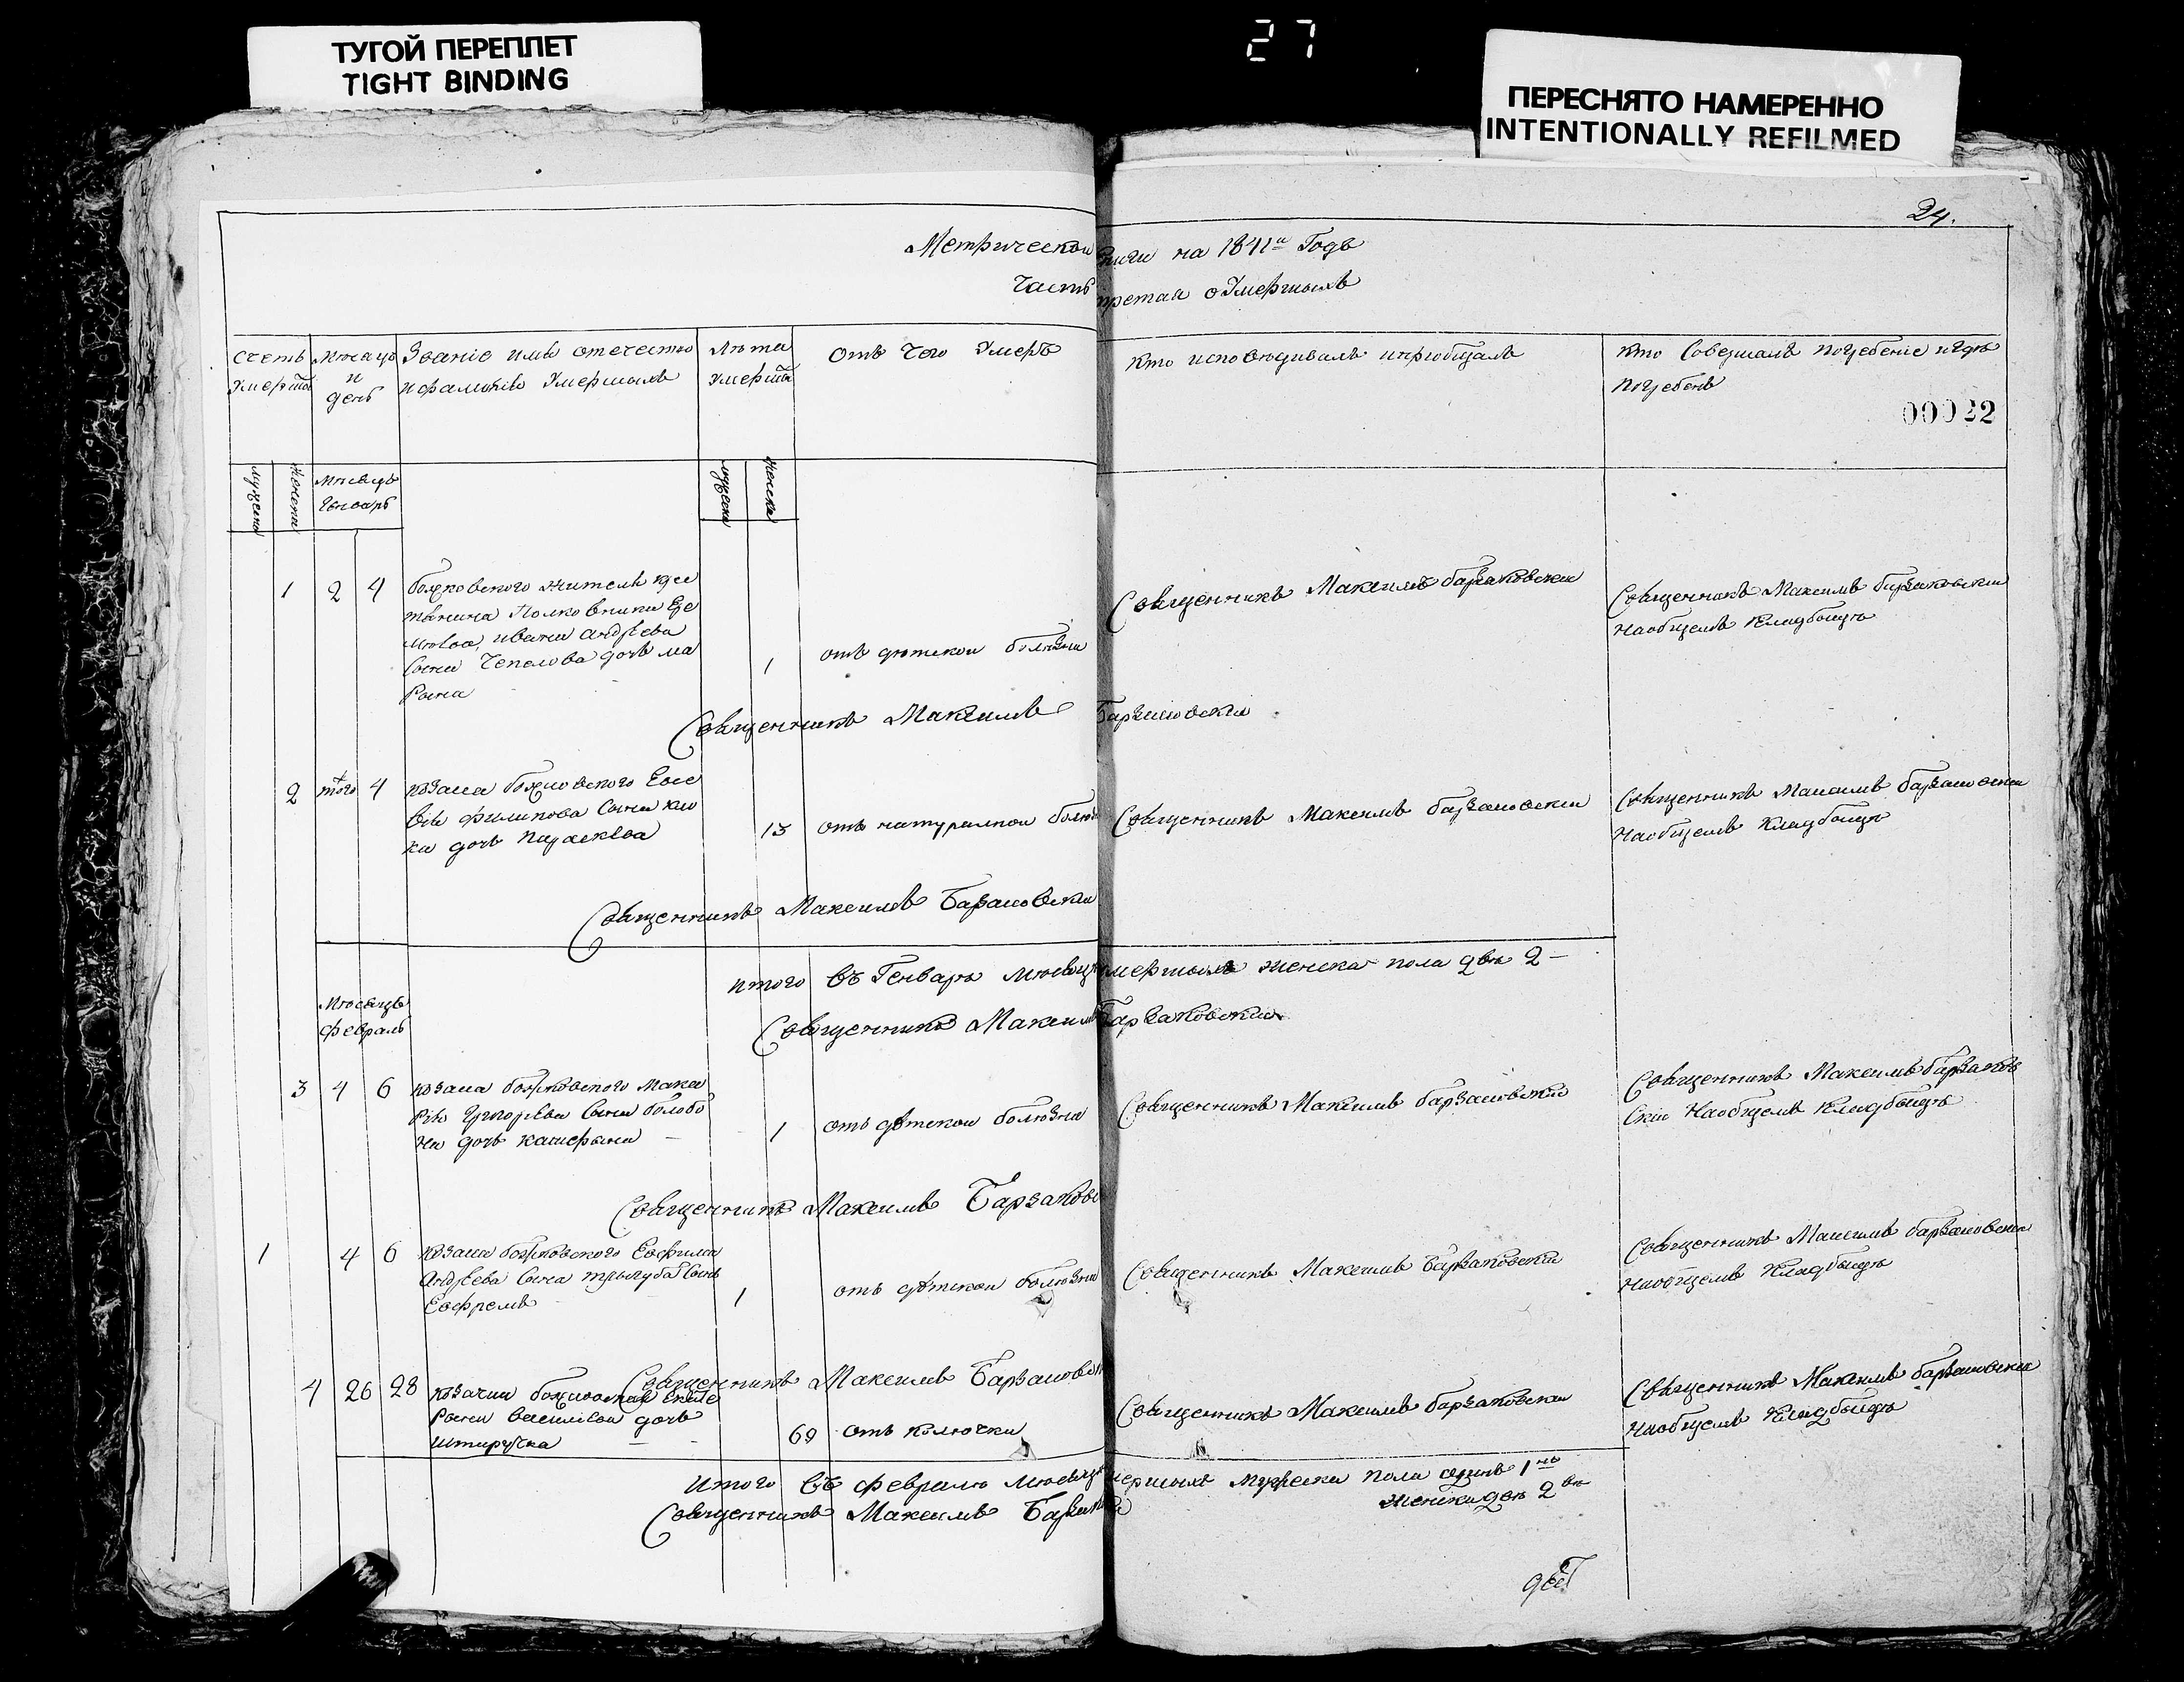 ТУГОЙ ПЕРЕПЛЕТ
TIGHT BINDING
27
ПЕРЕСНЯТО НАМЕРЕННО
INTENTIONALLY REFILMED
24.
Метрической книги на 1841й Годъ
Часть третая о Умершыхъ
Счетъ Умерш
Мѣсяцъ и день
Званіе имя отечество и фамилію Умершыхъ
Лѣта Умерш
отъ Чего Умеръ
кто исповѣдивалъ и приобщалъ
кто Совершалъ погребеніе и гдѣ погребенъ
00022
мужеска
женска
Мѣсяцъ Генварь
мужеска
женска
1 2 4
жителя
Полковника
Ивана Андрѣева
Сына Чепелова дочь Ма
рына
1
отъ дѣтской болѣзни
Священникъ Максимъ Барзаковскій
Священникъ Максимъ Барзаковскій
на общемъ Кладбищѣ
Священникъ Максимъ Барзаковскій
2 того 4
козака Евсе
вія Филипова Сына
дочь Параскева
13
отъ натуралной
Священникъ Максимъ Барзаковскій
Священникъ Максимъ Барзаковскій
на общемъ Кладбищѣ
Священникъ Максимъ Барзаковскій
итого въ Генварѣ мѣсяцѣ умершыхъ женска пола двѣ 2 —
Священникъ Максимъ Барзаковскій
Мѣсяцъ
Февраль
3 4 6
козака Мака
рія Григорѣва Сына
дочь катерына
1
отъ дѣтской болѣзни
Священникъ Максимъ Барзаковскій
Священникъ Максимъ Барзаков
скій на общемъ Кладбищѣ
Священникъ Максимъ Барзаковс
1 4 6
козака Евфима
Андрѣева Сына Сынъ
Евфремъ
1
отъ дѣтской болѣзни
Священникъ Максимъ Барзаковскій
Священникъ Максимъ Барзаковскій
на общемъ Кладбищѣ
Священникъ Максимъ Барзаковск
4 26 28
козачка
Василіева дочь
69
отъ колючки
Священникъ Максимъ Барзаковскій
Священникъ Максимъ Барзаковскій
на общемъ Кладбищѣ
Итого въ Февралѣ мѣсяцѣ умершыхъ мужеска пола единъ 1нъ
женска двѣ 2вѣ
Священникъ Максимъ Барзак